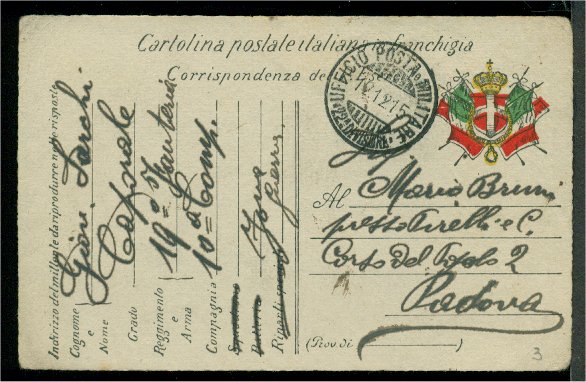 Cartolina postale italiana in franchigia
Corrispondenza del
UFFICIO POSTA MILITARE
19.12.15
Al Mario Bruni
presso Pirelli e C.
Corso del Popolo 2
Padova
(Prov di
3
Indirizzo del mittente da riprodurre nelle risposte
Cognome e Nome Gioni Sarchi
Grado Caporale
Reggimento e Arma 19º Fanteria
Compagnia 10ª Comp.
Squadrone
Batteria
Riparti Zona
Guerra